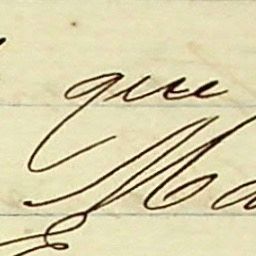 que
Ma